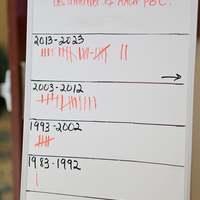 2013-2023
2003-2012
1993-2002
1983-1992